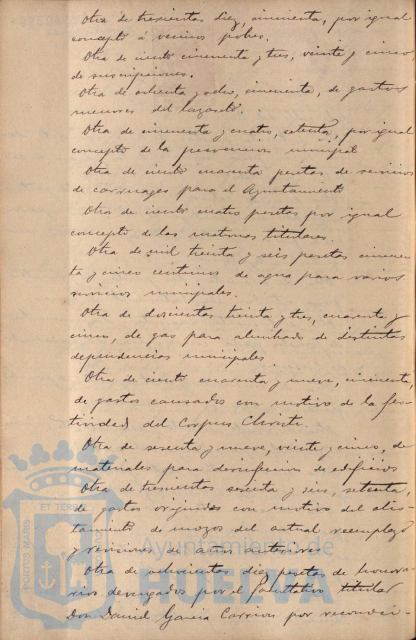 Otra de trescientas diez, cincuenta, por igual
concepto á vecinos pobres.
Otra de ciento cincuenta y tres, veinte y cinco,
de suscripciones.
Otra de ochenta y ocho, cincuenta, de gastos
menores del lazareto.
Otra de cincuenta y cuatro, setenta, por igual
concepto de la prevencion municipal
Otra de ciento cuarenta pesetas de servicio
de carruages para el Ayuntamiento
Otra de ciento cuatro pesetas por igual
concepto de las matronas titulares.
Otra de mil treinta y seis pesetas cincuen
ta y cinco centimos de agua para varios
servicios municipales.
Otra de doscientas treinta y tres, cuarenta y
cinco, de gas para alumbrado de distintas
dependencias municipales.
Otra de ciento cuarenta y nueve, cincuenta,
de gastos causados con motivo de la fes-
tividad del Corpus Christi.
Otra de sesenta y nueve, veinte y cinco, de
materiales para de edificios
Otra de trescientas sesenta y seis, setenta,
de gastos originados con motivo del alis-
tamiento de mozos del actual reemplazo
y revisiones de actos anteriores
Otra de ochocientas diez pesetas de honora-
rios devengados por el Facultativo titular
Don David Garcia Carrion por reconoci-
PORTUS MARIS
ET TERRAE
Ayuntamiento de
HUELVA